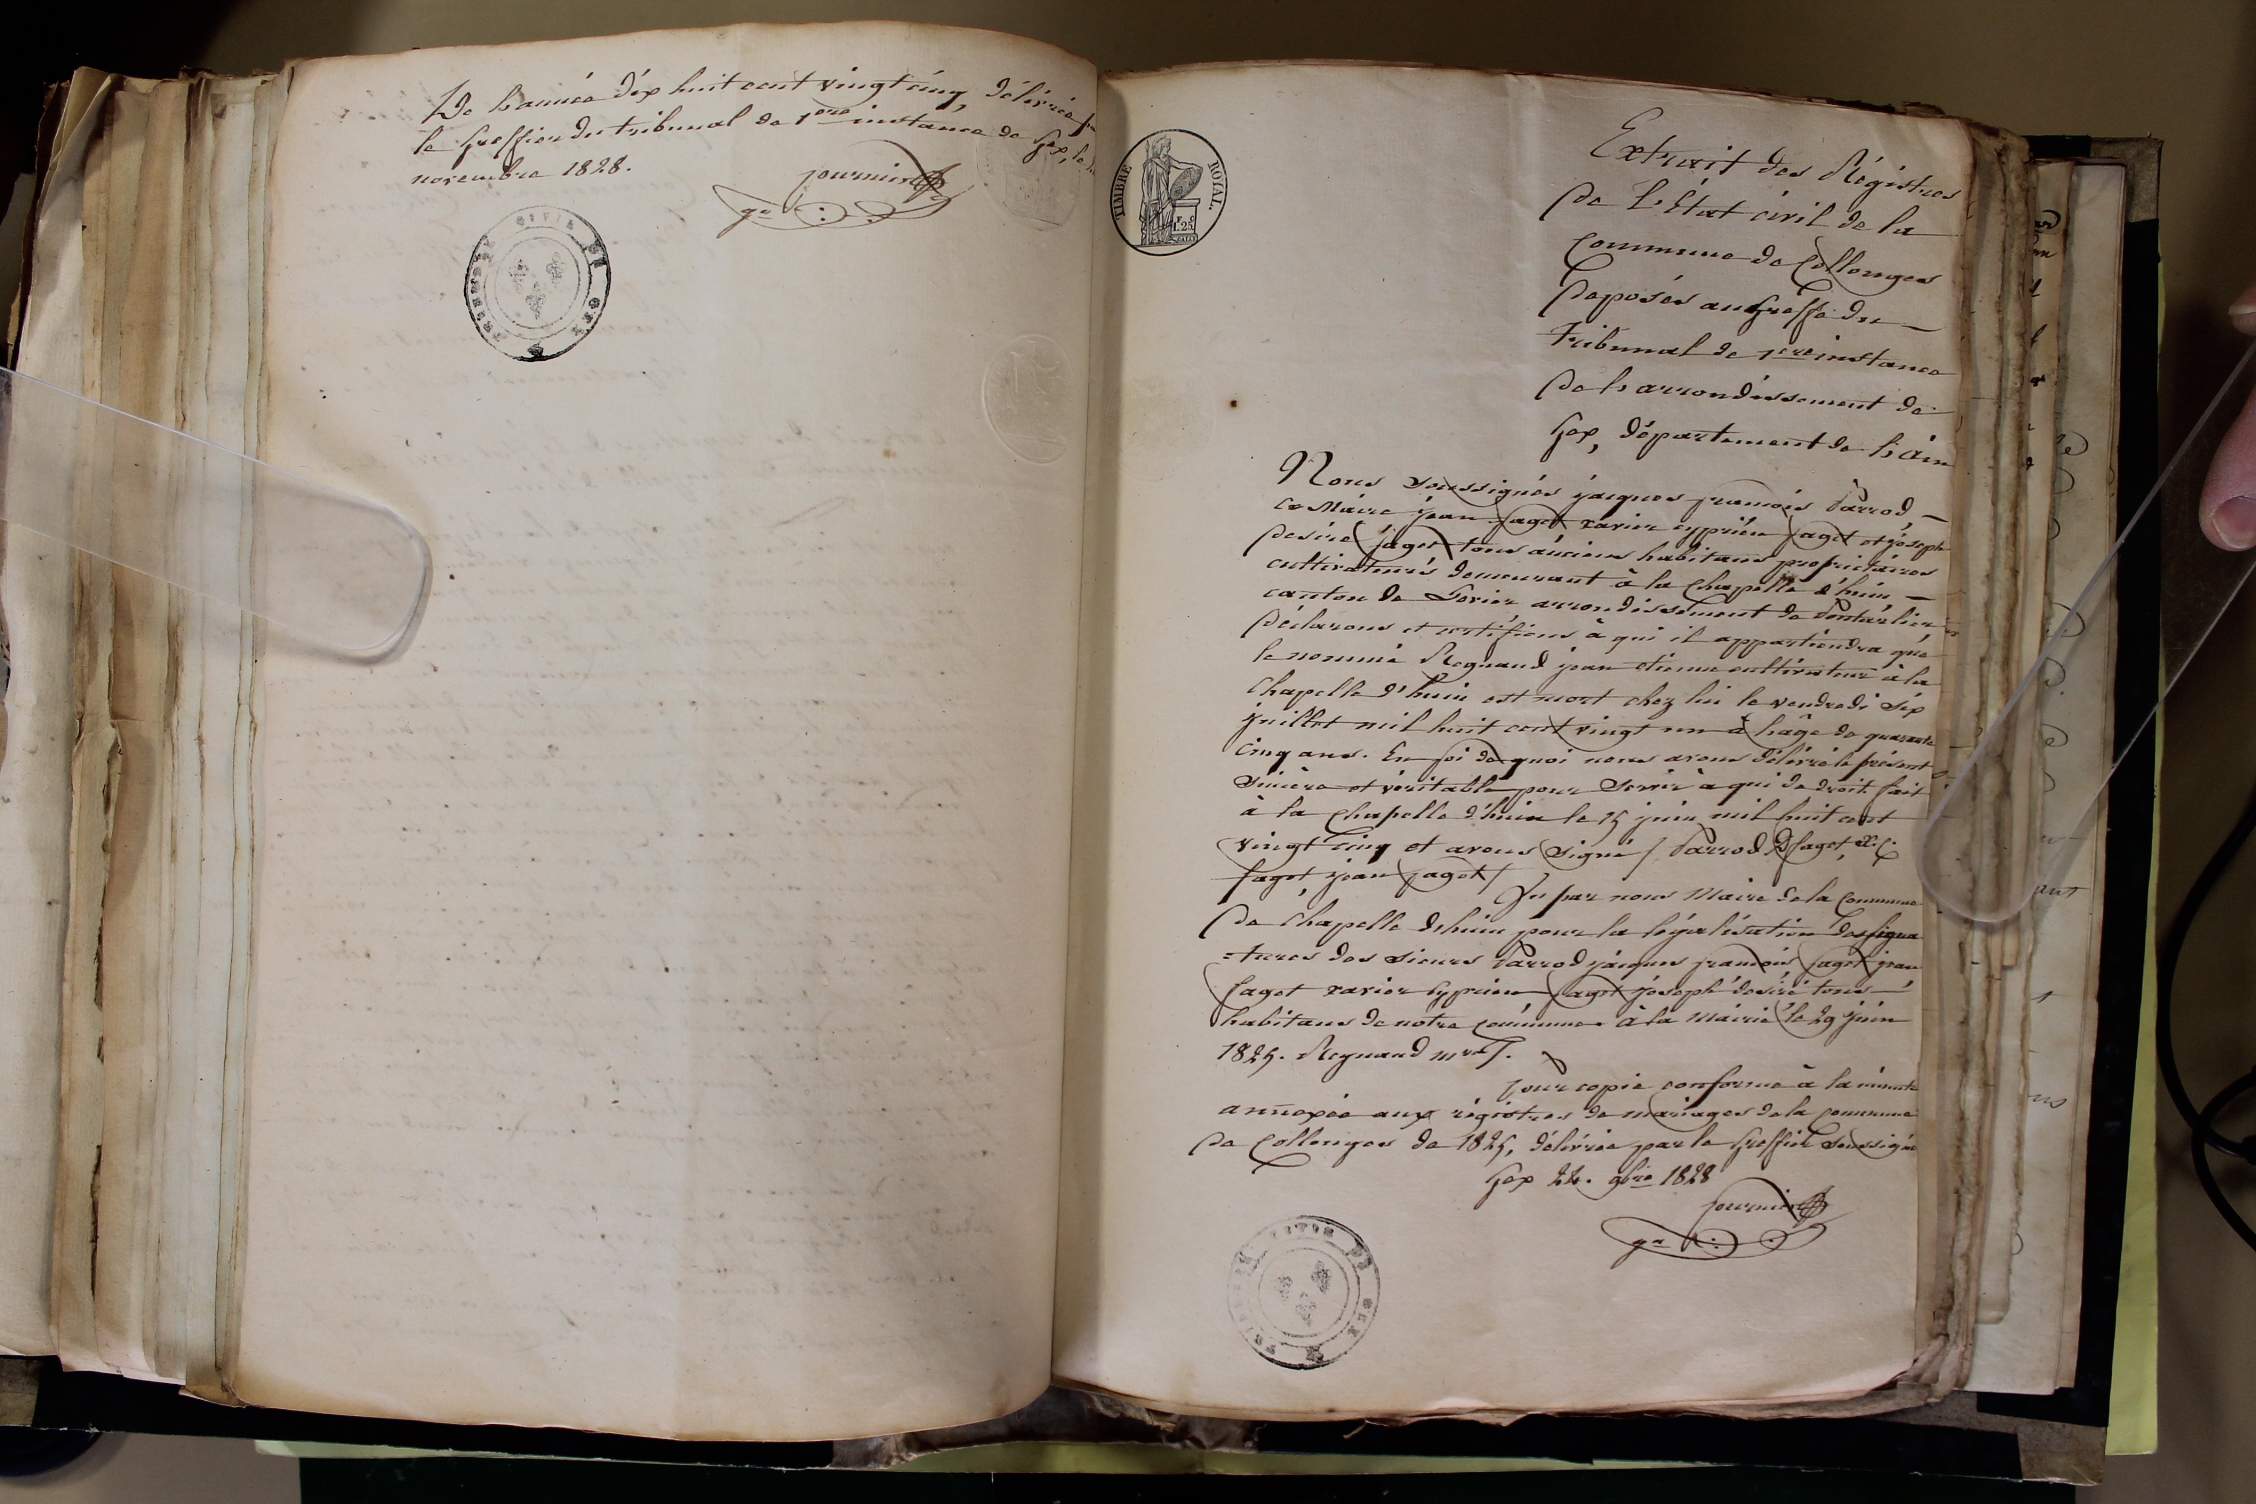 De l'année dix huit cent vingt cinq, délivrée par
le Greffier du tribunal de 1ere instance de Gex, le
novembre 1828.
fournier
ger
TRIBUNAL CIVIL DE GEX
TIMBRE ROYAL.
1.25
Extrait des Régistres
De L'État civil de la
Commune de Collonges
Déposés au Greffe du
Tribunal de 1ere instance
De l'arrondissement de
Gex, département de l'Ain
Nous soussignés jaques francois Parrod,
ex Maire jean fagot xavier cyprien fagot et joseph
Desiré fagot tous anciens habitans propriétaires
cultivateurs demeurant à la chapelle d'huin
canton de Levier arrondissement de Pontarlier
Déclarons et certifions à qui il appartiendra que
le nommé Regnaud jean etienne cultivateur à la
Chapelle d'huin est mort chez lui le vendredi six
juillet mil huit cent vingt un à l'âge de quarante
cinq ans. En foi de quoi nous avons délivré le présent
Sincère et véritable pour servir à qui de droit fait
à la Chapelle d'huin le 15 juin mil huit cent
vingt cinq et avons signé / Parrod fagot, x. c.
fagot, jean fagot /
Vu par nous Maire de la Commune
De Chapelle d'huin pour la légalisation des signa
=tures des sieurs Parrod jaques francois fagot jean
fagot xavier Cyprien fagot joseph desiré tous
habitans de notre commune à la Mairie le 29 juin
1825. Regnaud
Pour copie conforme à la minute
annexée aux régistres de mariages de la Commune
De Collonges de 1825, délivrée par le Greffier soussigné
Gex 22. 9bre 1828
fournier
ger
TRIBUNAL CIVIL DE GEX